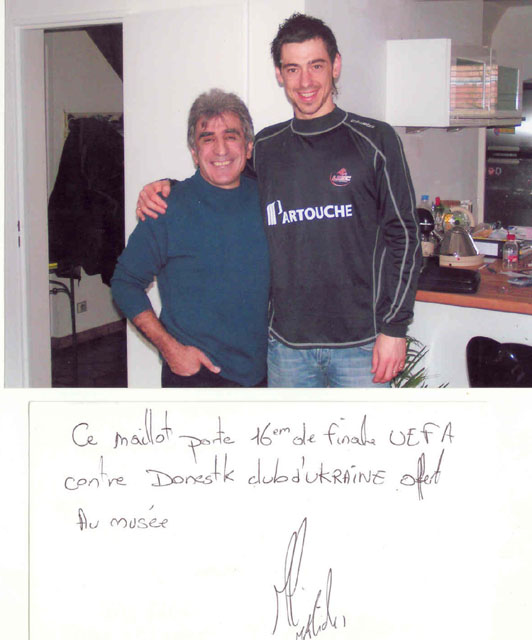 M'ARTOUCHE
Ce maillot porte 16em de finale UEFA
contre Donestk club d'UKRAINE offert
Au musée